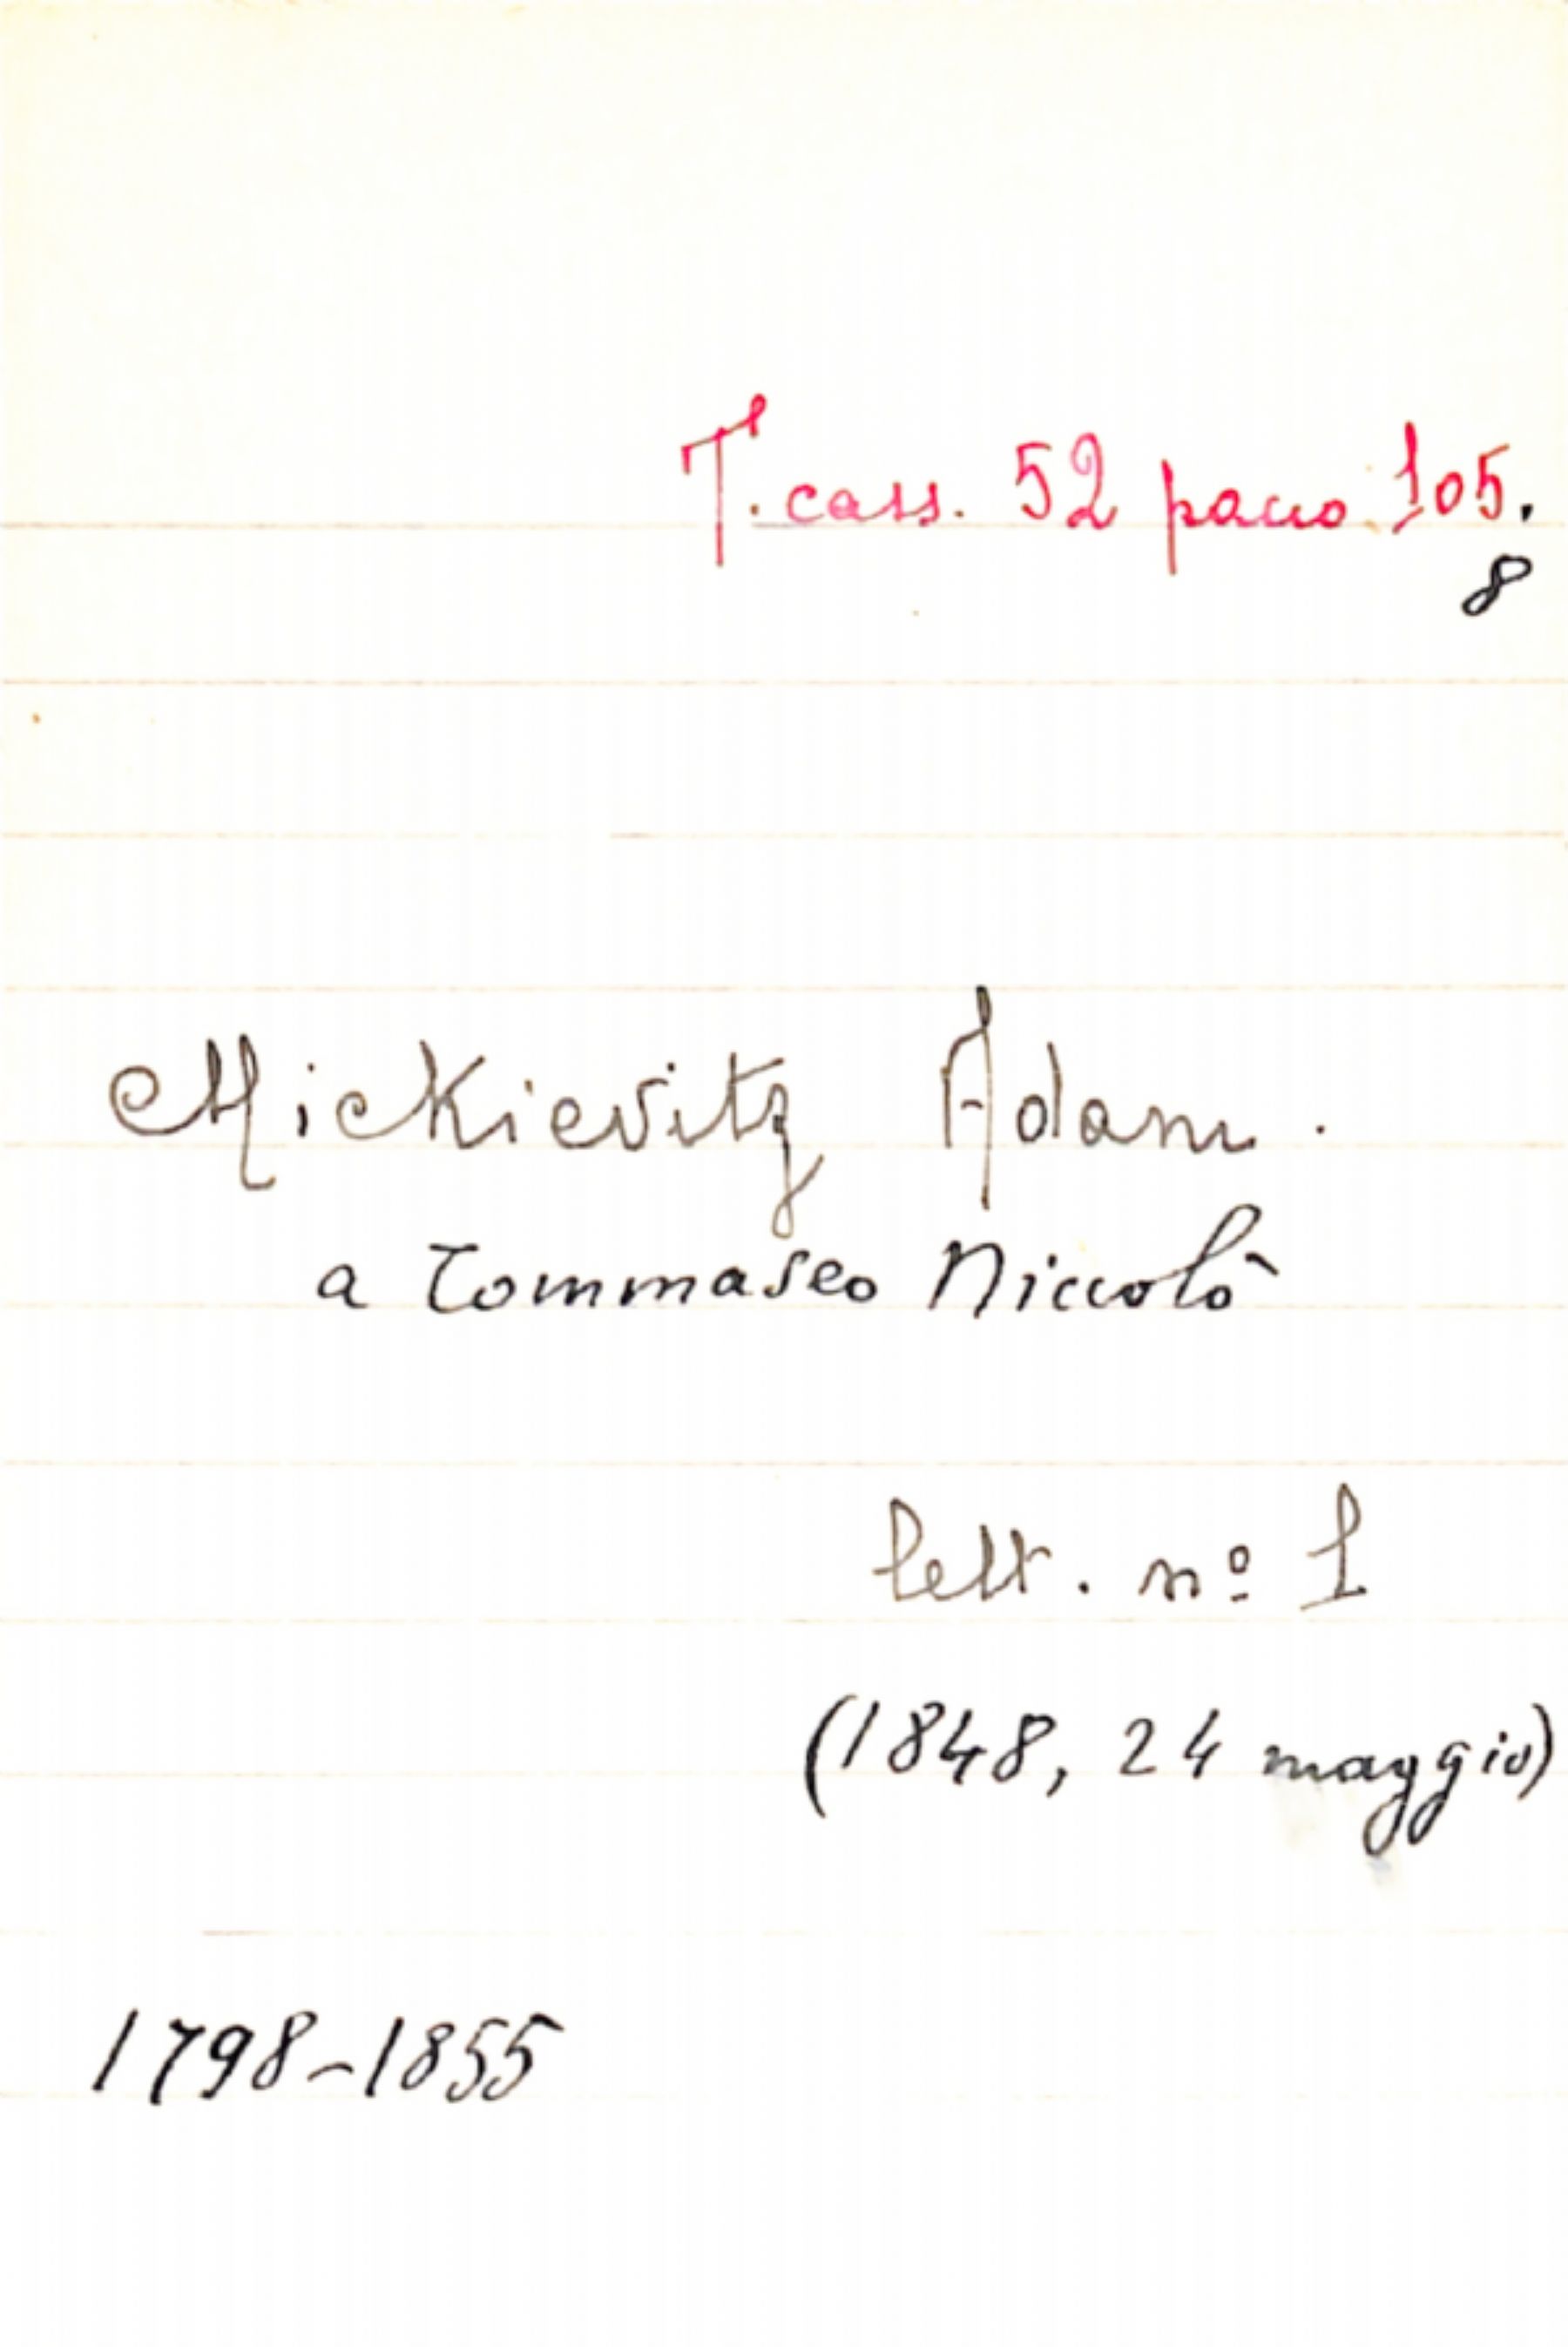 T. cass. 52 pacco 105.
8
Mickievitz Adam.
a Tommaseo Niccolò
lett. nº 1
(1848, 24 maggio)
1798-1855